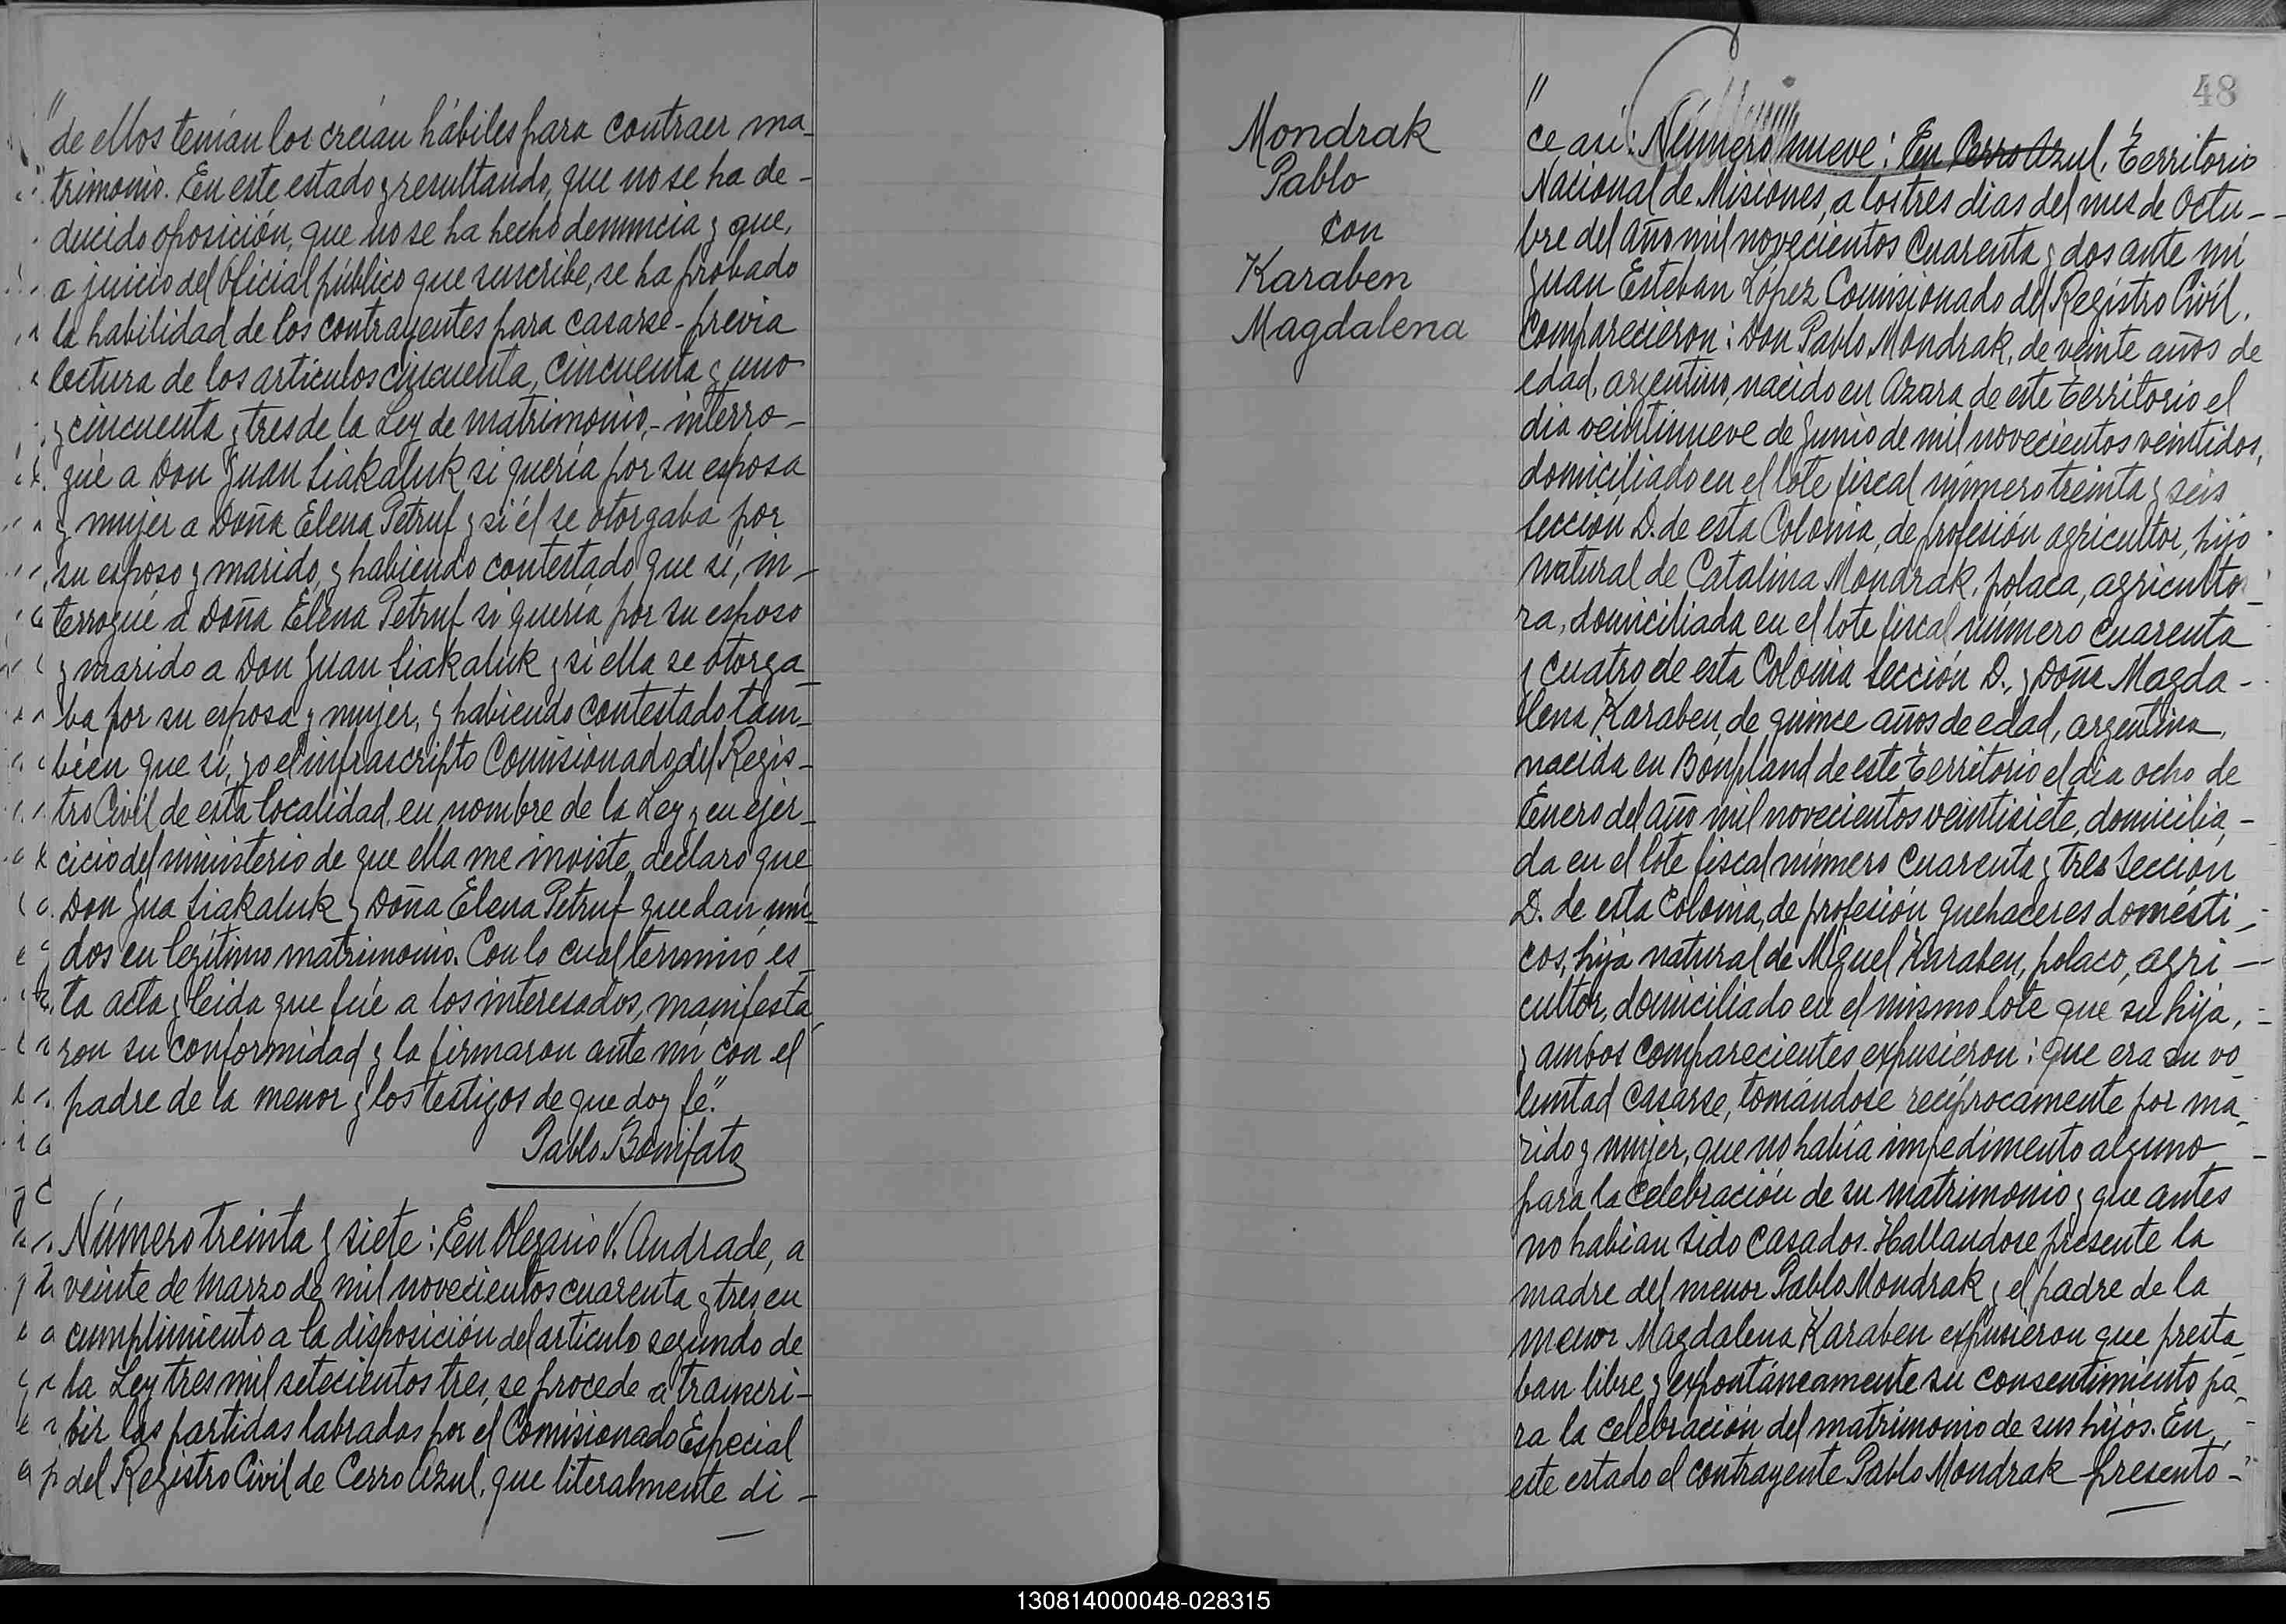 "de ellos tenían los creían hábiles para contraer ma-
trimonio. En este estado y resultando, que no se ha de-
ducido oposición, que no se ha hecho denuncia y que,
a juicio del Oficial público que suscribe, se ha probado
la habilidad de los contrayentes para casarse - previa
lectura de los artículos cincuenta, cincuenta y uno
y cincuenta y tres de la Ley de matrimonio, - interro-
gué a Don Juan Siakaluk si quería por su esposa
y mujer a Doña Elena Petruf y si él se otorgaba por
su esposo y marido, y habiendo contestado que sí, in-
terrogué a Doña Elena Petruf si quería por su esposo
y marido a Don Juan Siakaluk y si ella se otorga-
ba por su esposa y mujer, y habiendo contestado tam-
bién que sí, yo el infrascripto Comisionado del Regis-
tro Civil de esta localidad, en nombre de la Ley y en ejer-
cicio del ministerio de que ella me inviste, declaro que
Don Jua Siakaluk y Doña Elena Petruf quedan uni-
dos en legítimo matrimonio. Con lo cual terminó es-
ta acta y leída que fué a los interesados, manifesta-
ron su conformidad y la firmaron ante mí con el
padre de la menor y los testigos de que doy fé."
Pablo Bonifato
Número treinta y siete: En Olegario V. Andrade, a
veinte de Marzo de mil novecientos cuarenta y tres, en
cumplimiento a la disposición del artículo segundo de
la Ley tres mil setecientos tres, se procede a transcri-
bir las partidas labradas por el Comisionado Especial
del Registro Civil de Cerro Azul, que literalmente di-
48
Mondrak
Pablo
con
Karaben
Magdalena
"
ce así: Número nueve: En Cerro Azul, Territorio
Nacional de Misiones, a los tres días del mes de Octu-
bre del año mil novecientos cuarenta y dos ante mí
Juan Esteban López Comisionado del Registro Civil,
Comparecieron: Don Pablo Mondrak, de veinte años de
edad, argentino, nacido en Azara de este Territorio el
día veintinueve de Junio de mil novecientos veintidos,
domiciliado en el lote fiscal número treinta y seis
Sección D. de esta Colonia, de profesión agricultor, hijo
natural de Catalina Mondrak, polaca, agriculto-
ra, domiciliada en el lote fiscal número cuarenta
y cuatro de esta Colonia Sección D., y Doña Magda-
lena Karaben, de quince años de edad, argentina,
nacida en Bonpland de este Territorio el día ocho de
Enero del año mil novecientos veintisiete, domicilia-
da en el lote fiscal número cuarenta y tres Sección
D. de esta Colonia, de profesión quehaceres domésti-
cos, hija natural de Miguel Karaben, polaco, agri-
cultor, domiciliado en el mismo lote que su hija,
y ambos comparecientes expusieron: Que era su vo-
luntad casarse, tomándose recíprocamente por ma-
rido y mujer, que no había impedimento alguno
para la celebración de su matrimonio y que antes
no habían sido casados. Hallandose presente la
madre del menor Pablo Mondrak y el padre de la
menor Magdalena Karaben expusieron que presta-
ban libre y expontáneamente su consentimiento pa-
ra la celebración del matrimonio de sus hijos. En
este estado el contrayente Pablo Mondrak presentó-
130814000048-028315